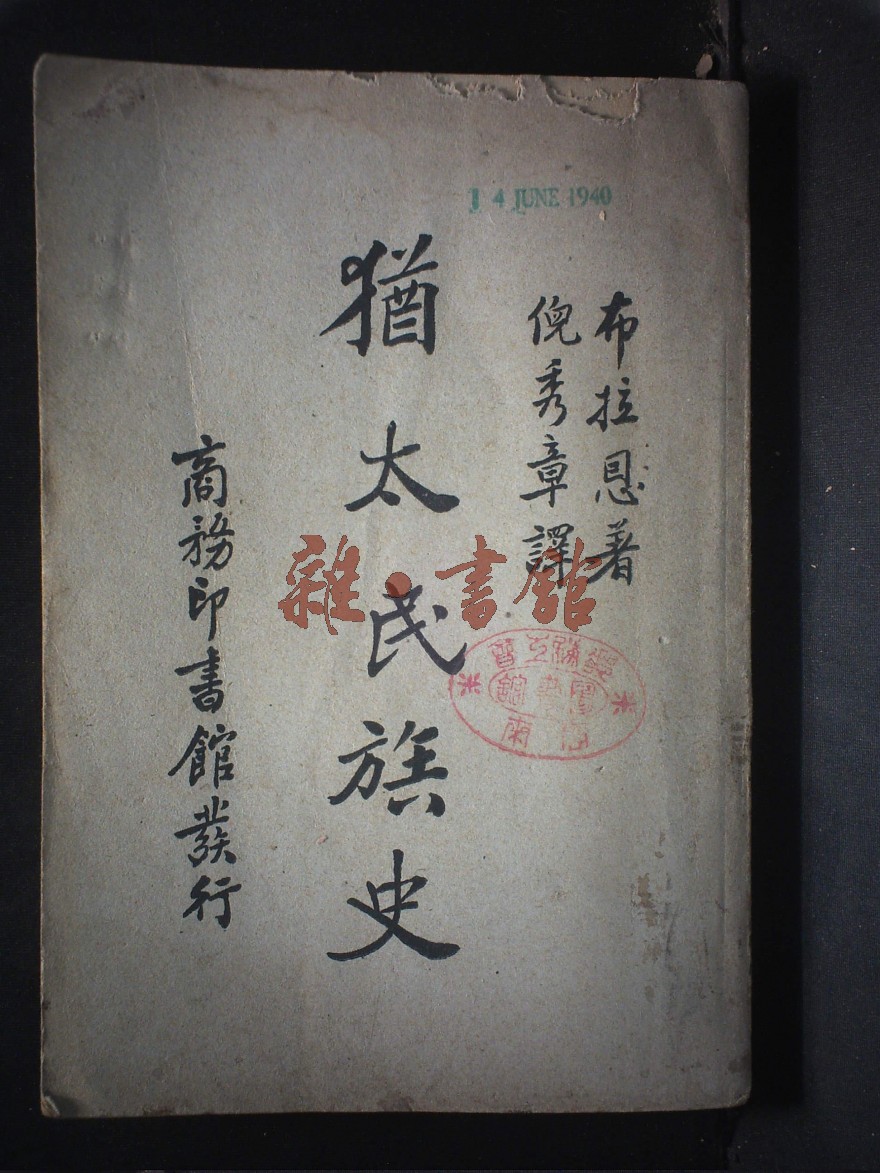 1 4 JUNE 1940
布拉恩著
倪秀章譯
猶太民族史
商務印書館發行
雜·書館